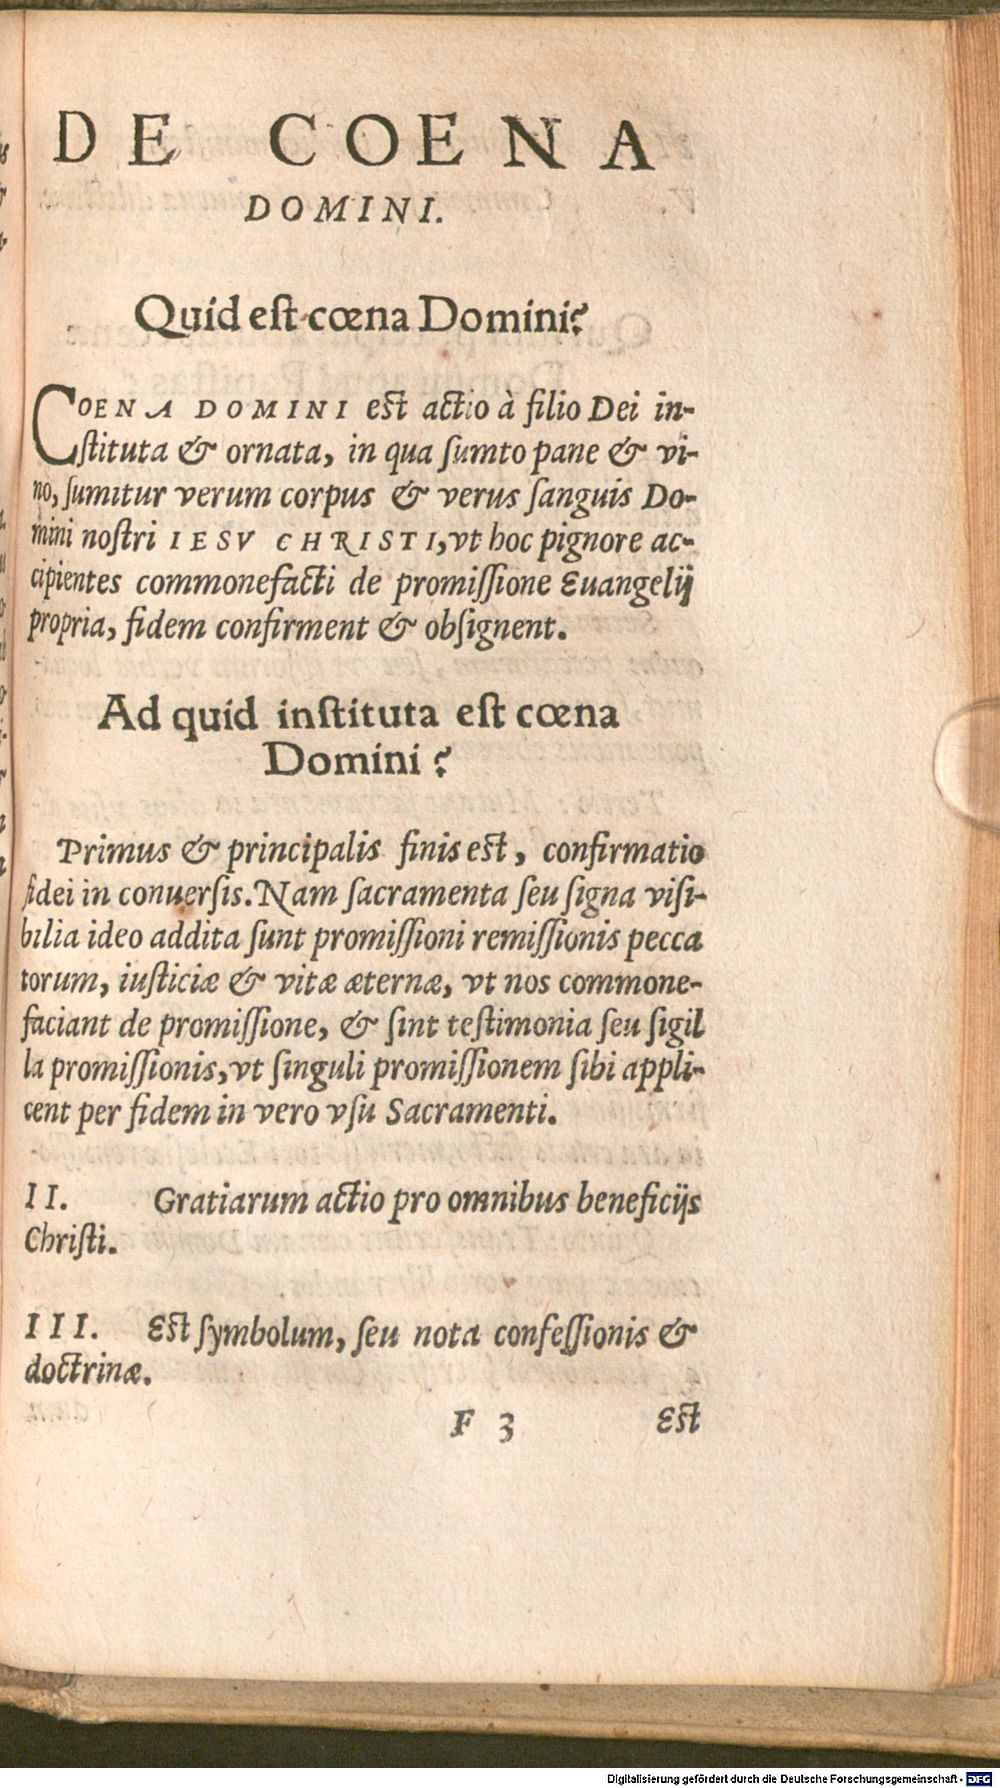 DE COENA
DOMINI.
Quid est cœna Domini?
COENA DOMINI est actio à filio Dei in-
stituta & ornata, in qua sumto pane & vi-
no, sumitur verum corpus & verus sanguis Do-
mini nostri IESV CHRISTI, vt hoc pignore ac-
cipientes commonefacti de promissione Euangelij
propria, fidem confirment & obsignent.
Ad quid instituta est cœna
Domini?
Primus & principalis finis est, confirmatio
fidei in conuersis. Nam sacramenta seu signa visi-
bilia ideo addita sunt promissioni remissionis pecca
torum, iusticiæ & vitæ æternæ, vt nos commone-
faciant de promissione, & sint testimonia seu sigil
la promissionis, vt singuli promissionem sibi appli-
cent per fidem in vero vsu Sacramenti.
II. Gratiarum actio pro omnibus beneficijs
Christi.
III. Est symbolum, seu nota confessionis &
doctrinæ.
F 3 Est
Digitalisierung gefördert durch die Deutsche Forschungsgemeinschaft - DFG